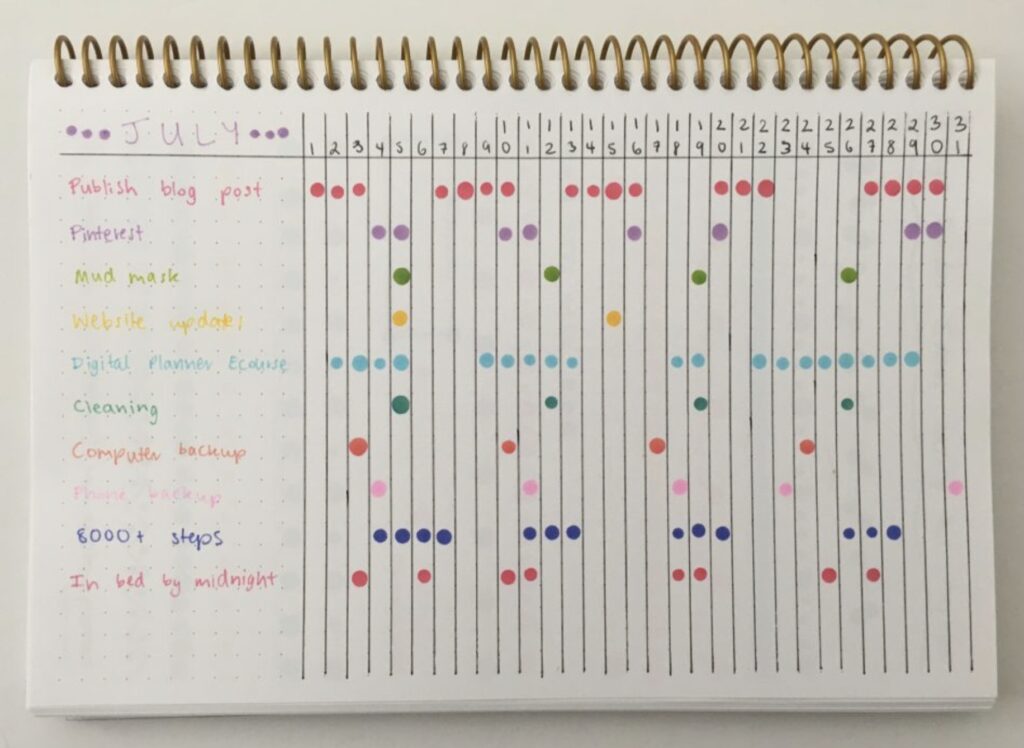 JULY
1 2 3 4 5 6 7 8 9 10 11 12 13 14 15 16 17 18 19 20 21 22 23 24 25 26 27 28 29 30 31
Publish blog post
Pinterest
Mud mask
Website updates
Digital Planner Ecourse
Cleaning
Computer backup
Phone backup
8000+ steps
In bed by midnight